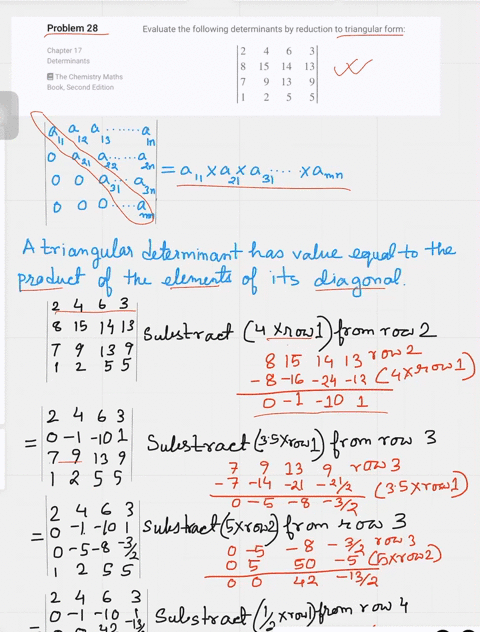 Problem 28
Evaluate the following determinants by reduction to triangular form:
Chapter 17
Determinants
The Chemistry Maths
Book, Second Edition
2 4 6 3
8 15 14 13
7 9 13 9
1 2 5 5
a11 a12 a13 ....... a1n
0 a21 a22 ..... a2n
0 0 a31 ... a3n
0 0 0 ..... amn
= a11 x a21 x a31 .... x amn
A triangular determinant has value equal to the
product of the elements of its diagonal.
2 4 6 3
8 15 14 13
7 9 13 9
1 2 5 5
Substract (4 x row1) from row 2
8 15 14 13 row 2
-8 -16 -24 -12 (4 x row 1)
0 -1 -10 1
= 2 4 6 3
0 -1 -10 1
7 9 13 9
1 2 5 5
Substract (3.5 x row1) from row 3
7 9 13 9 row 3
-7 -14 -21 -21/2 (3.5 x row1)
0 -5 -8 -3/2
= 2 4 6 3
0 -1 -10 1
0 -5 -8 -3/2
1 2 5 5
Substract (5 x row2) from row 3
0 -5 -8 -3/2 row 3
0 5 50 -5 (5 x row2)
0 0 42 -13/2
= 2 4 6 3
0 -1 -10 1
Substract (1/2 x row1) from row 4